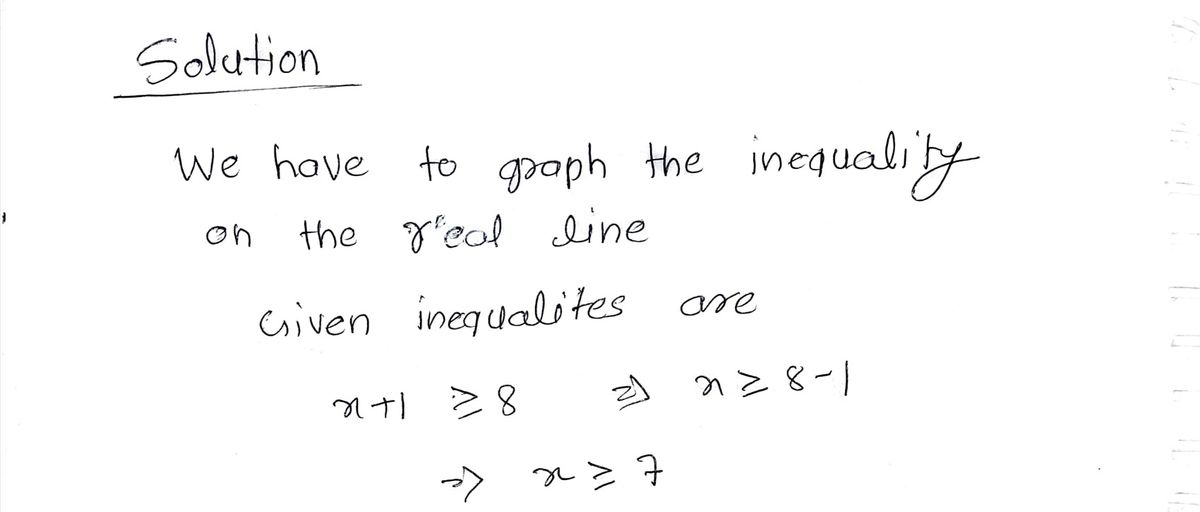 Solution
We have to graph the inequality
on the real line
Given inequalites are
x+1 ≥ 8 ⇒ x ≥ 8-1
⇒ x ≥ 7